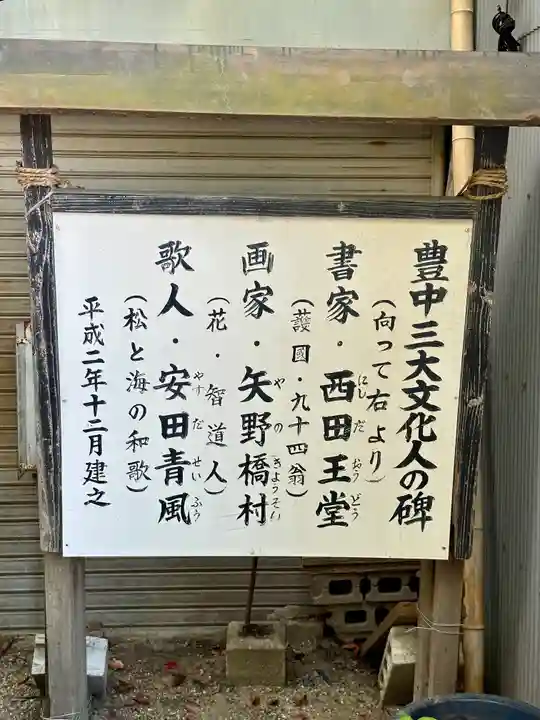 豊中三大文化人の碑
（向って右より）
書家・西田王堂
にしだおうどう
（護國・九十四翁）
画家・矢野橋村
やのきょうそん
（花・智道人）
歌人・安田青風
やすだせいふう
（松と海の和歌）
平成二年十二月建之